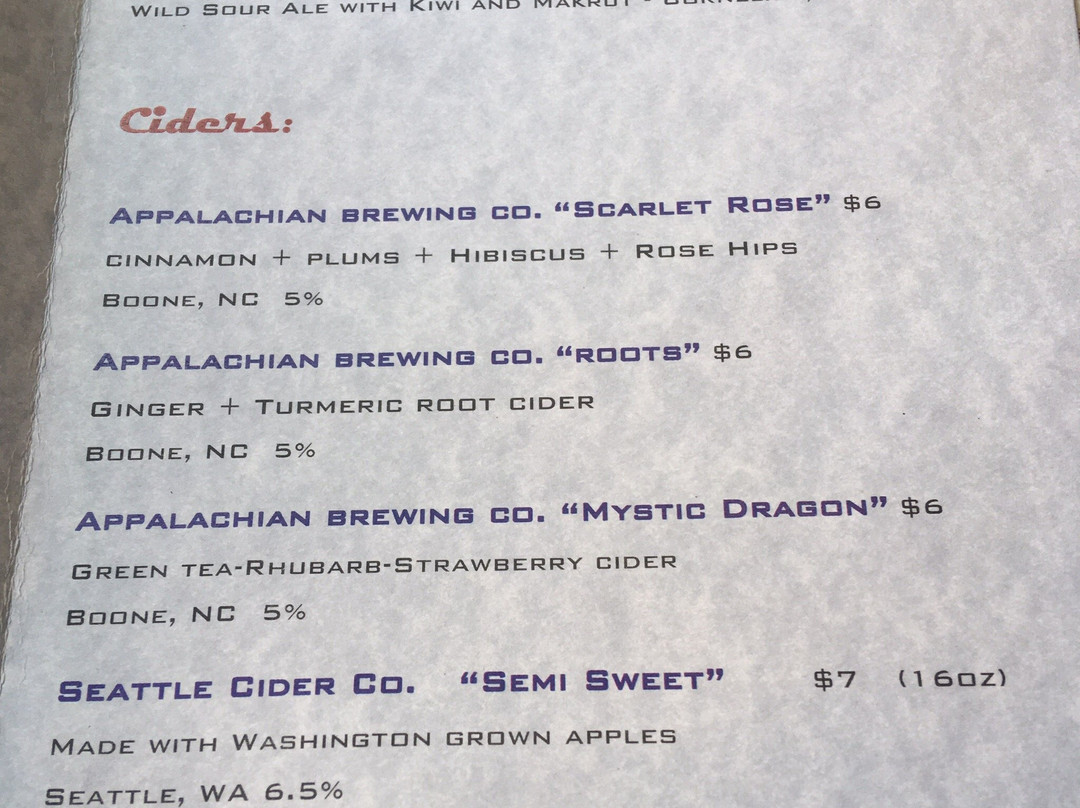 Wild Sour Ale with Kiwi and
Ciders:
Appalachian brewing co. “Scarlet Rose” $6
cinnamon + plums + Hibiscus + Rose Hips
Boone, NC 5%
Appalachian brewing co. “roots” $6
Ginger + Turmeric root cider
Boone, NC 5%
Appalachian brewing co. “Mystic Dragon” $6
Green tea-Rhubarb-Strawberry cider
Boone, NC 5%
Seattle Cider Co. “Semi Sweet” $7 (16oz)
Made with Washington grown apples
Seattle, WA 6.5%